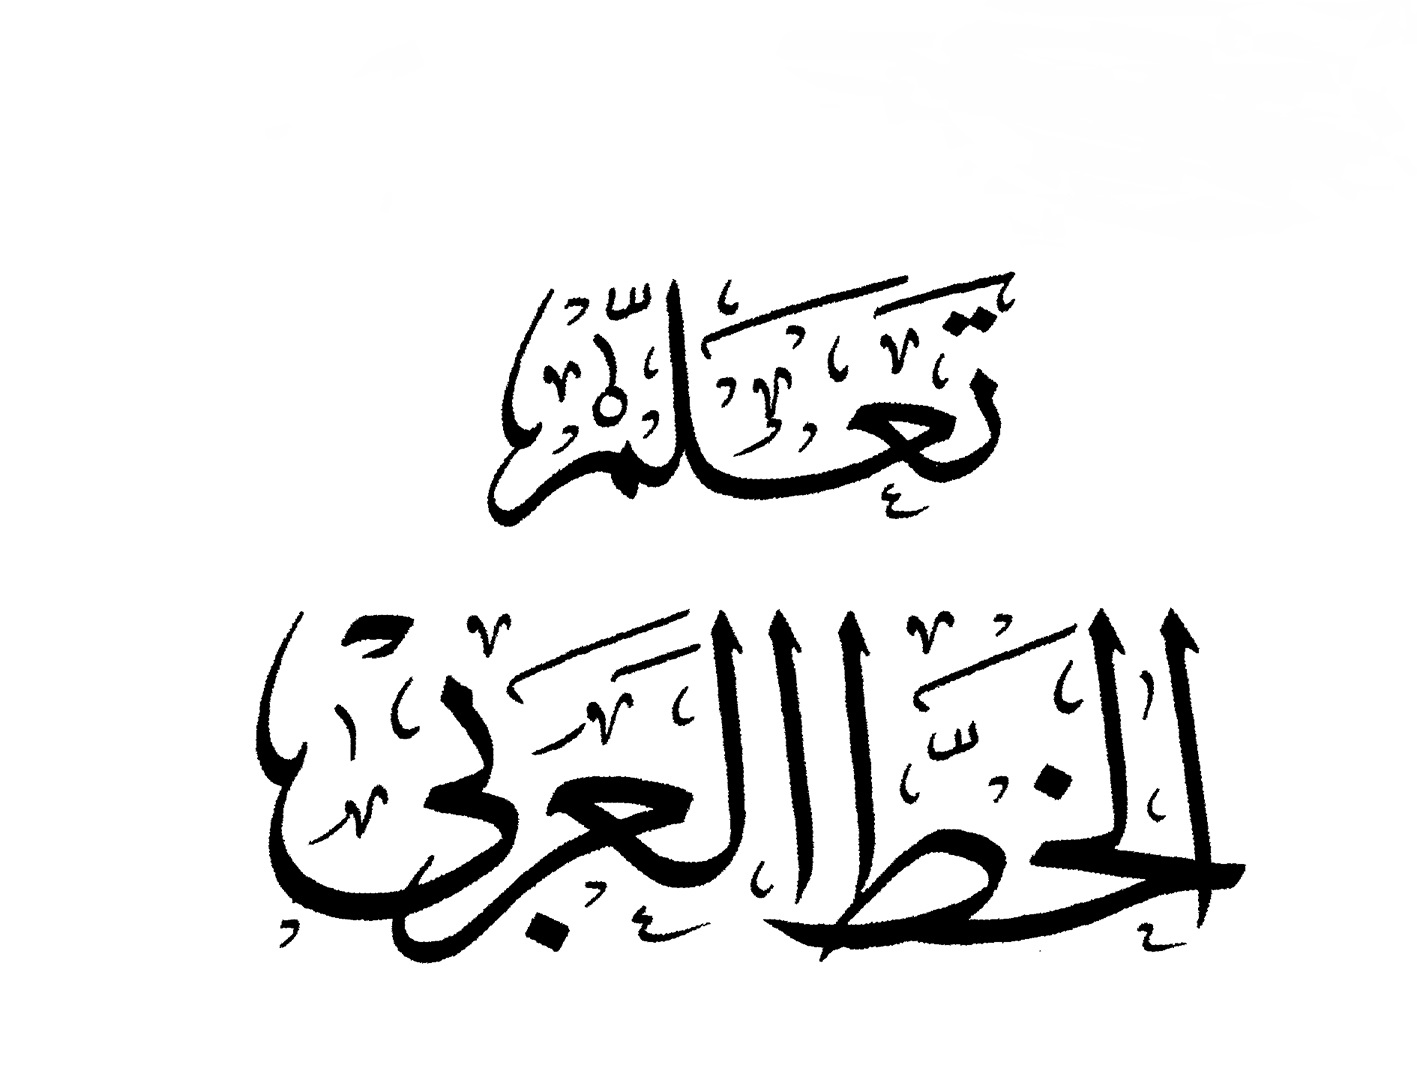 تعلم
الخط العربي